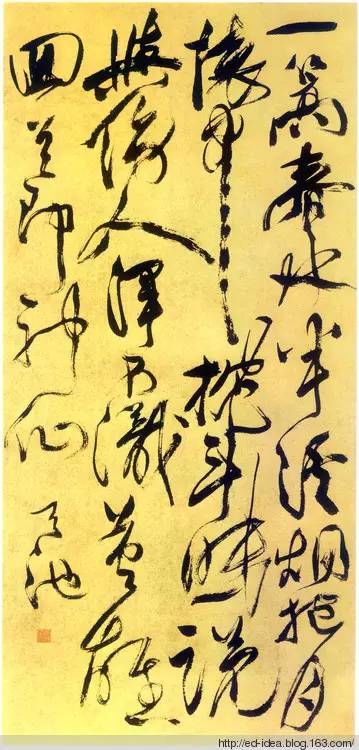 一篙春水半溪烟抱月
懷中枕斗眠說
與傍人渾不識英雄
回首即神仙 天池
http://ed-idea.blog.163.com/